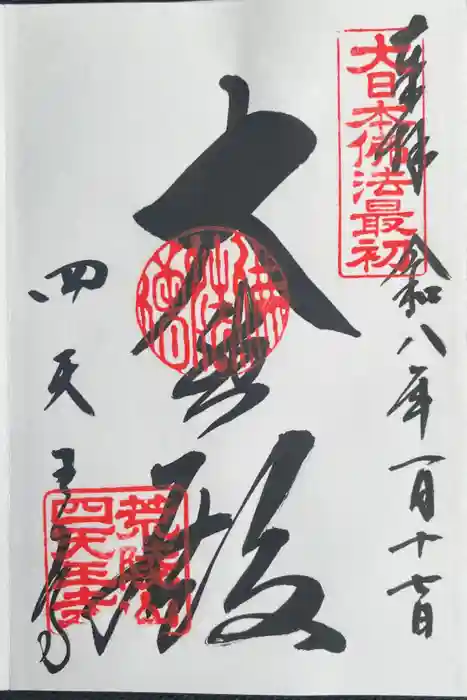 奉拝 令和八年一月十七日
大日本佛法最初
大悲殿
四天王寺
荒陵山
四天王寺